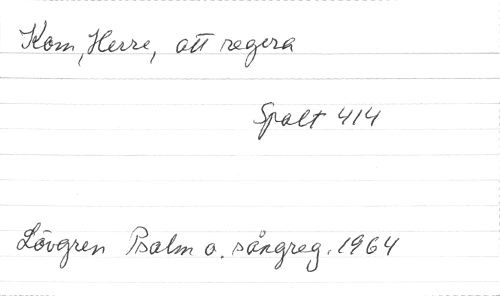 Kom, Herre, att regera
Spalt 414
Lövgren Psalm o. sångreg. 1964